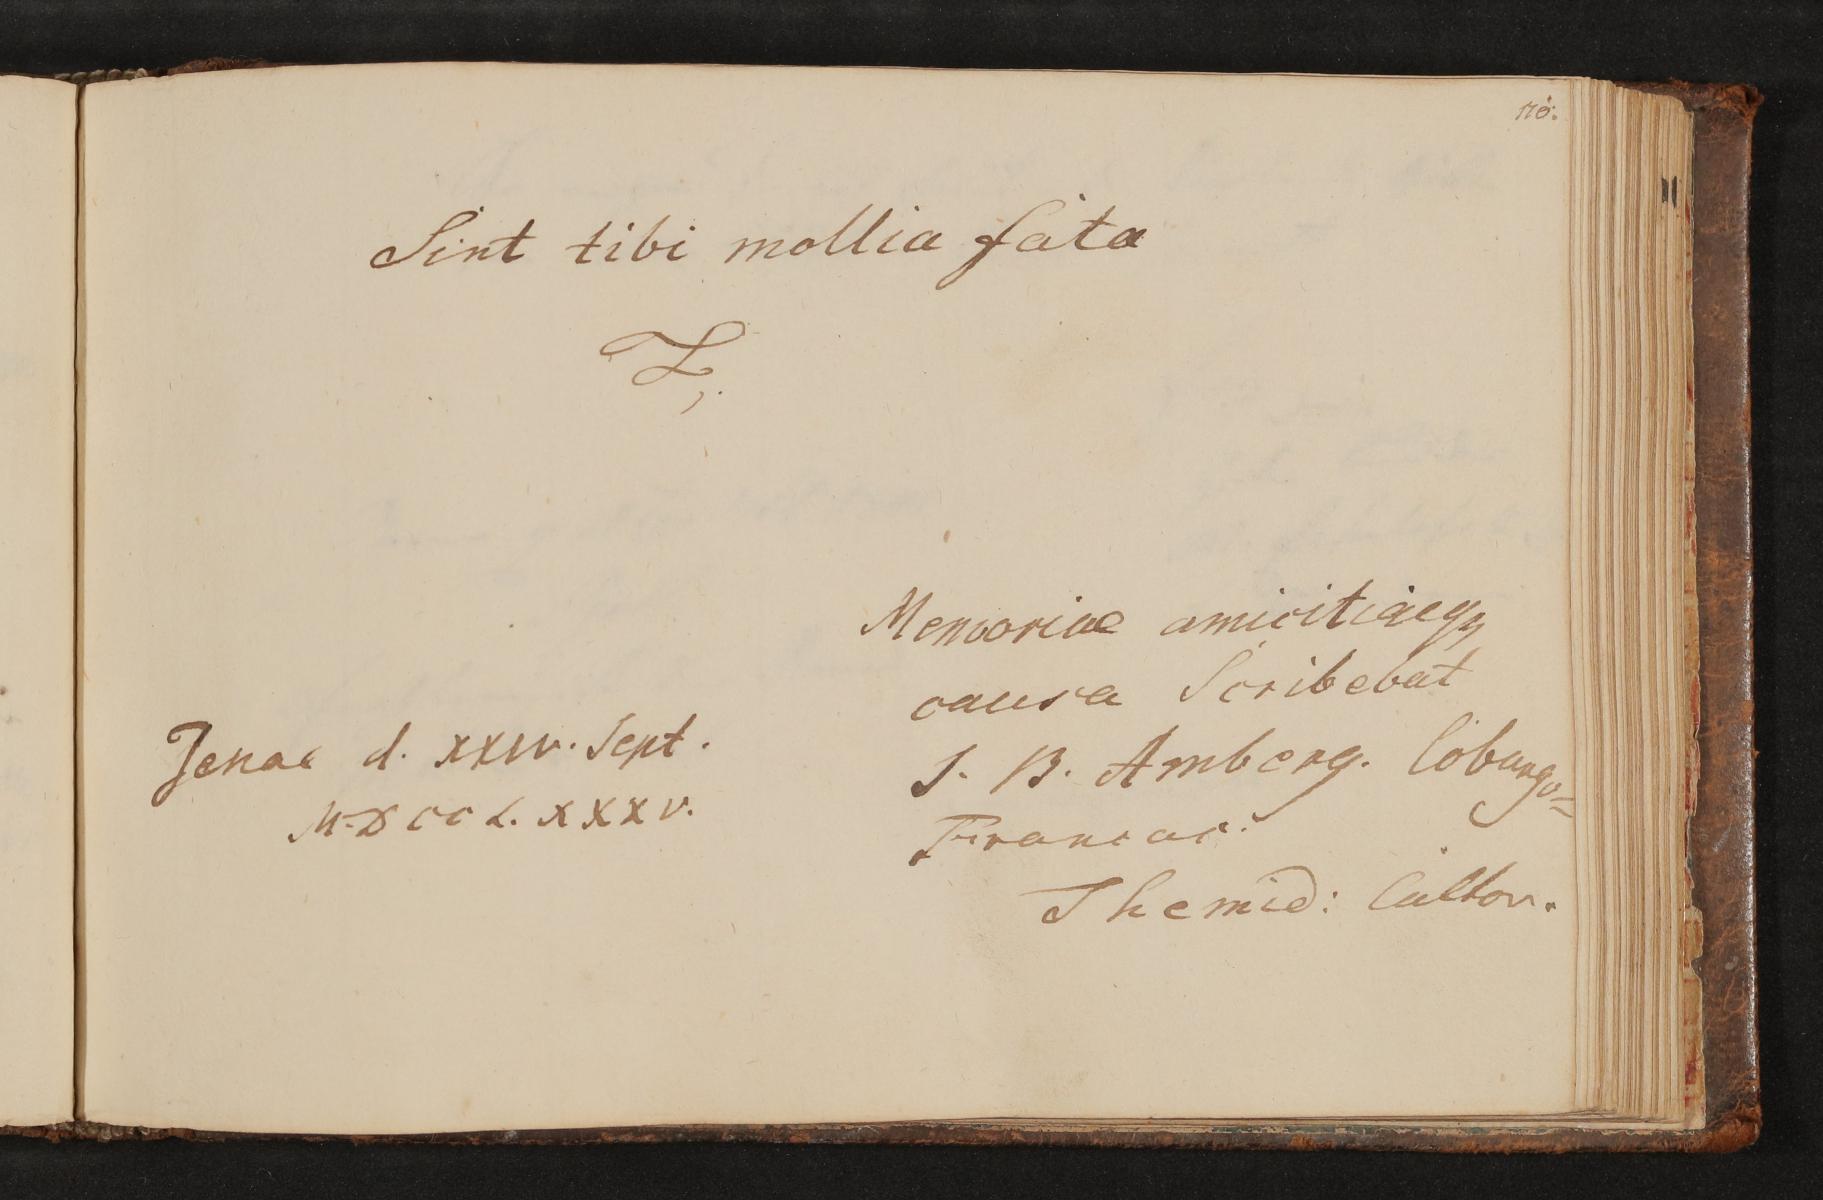 Sint tibi mollia fata
Memoriae amicitiaeq
causa Scribebat
Jenae d. XXIV. Sept.
MDCCLXXXV.
J. B. Amberg. Coburgo=
Francus.
Themid: Cultor.